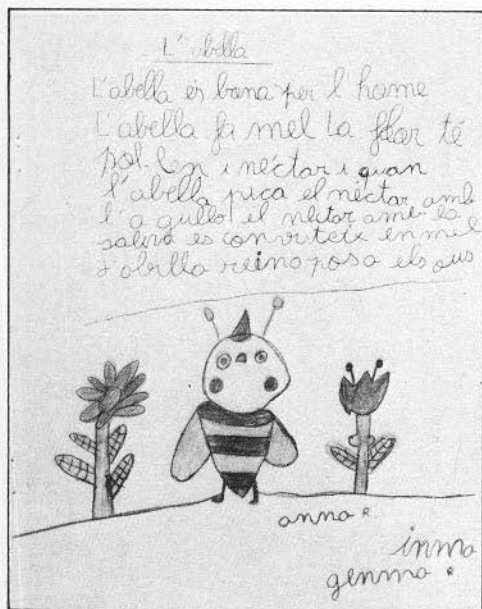 L'abella
L'abella és bona per l'home
L'abella fa mel La flor té
pol·len i nèctar i quan
l'abella pica el nèctar amb
l'agulló el nèctar amb la
saliva es converteix en mel
L'abella reina posa els ous
anna R.
inma
gemma R.